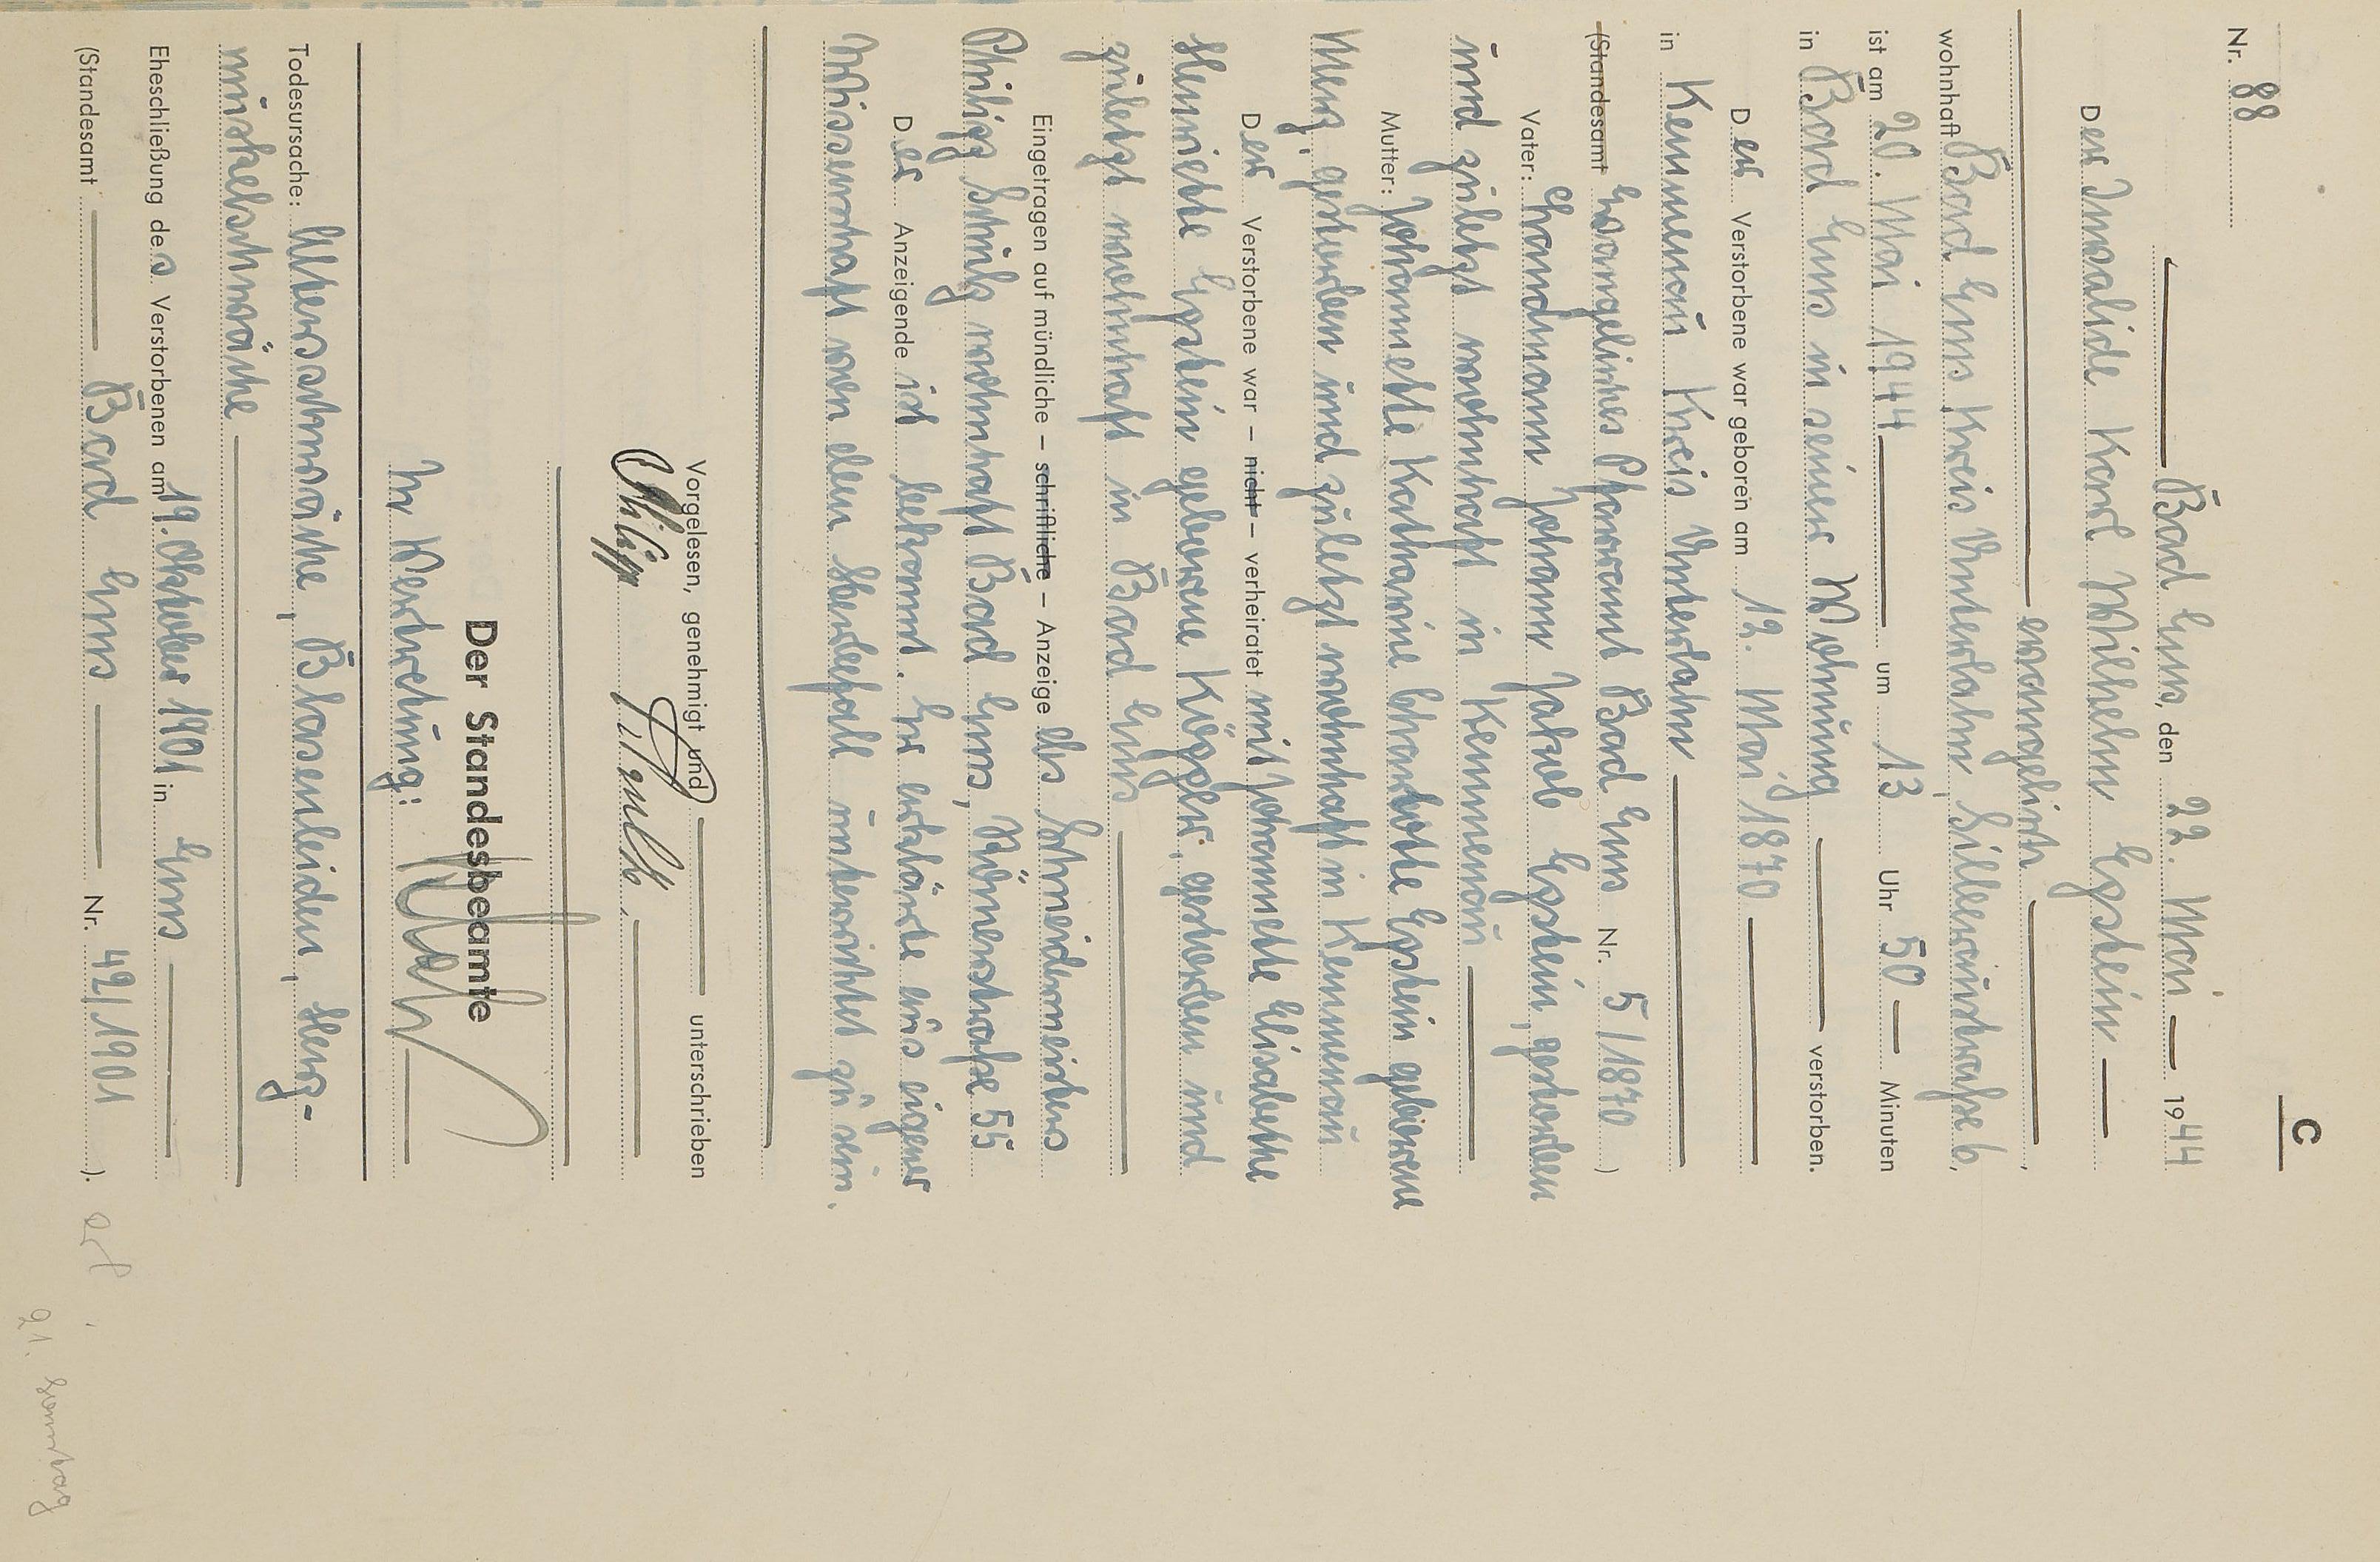 C
Nr. 88
Bad Ems, den 22. Mai 1944
Der Invalide Karl Wilhelm Epstein
evangelisch,
wohnhaft Bad Ems Kreis Unterlahn, Silberaustraße 6,
ist am 20. Mai 1944 um 13 Uhr 50 Minuten
in Bad Ems in seiner Wohnung verstorben.
Der Verstorbene war geboren am 12. Mai 1870
in Kemmenau Kreis Unterlahn
(Standesamt Evangelisches Pfarramt Bad Ems Nr. 5/1870)
Vater: Landmann Johann Jakob Epstein, gestorben
und zuletzt wohnhaft in Kemmenau
Mutter: Johannette Katharine Charlotte Epstein geborene
Menz, gestorben und zuletzt wohnhaft in Kemmenau
Der Verstorbene war – nicht – verheiratet mit Johannette Elisabethe
Henriette Epstein geborene Köppler, gestorben und
zuletzt wohnhaft in Bad Ems
Eingetragen auf mündliche – schriftliche – Anzeige des Schneidermeisters
Philipp wohnhaft Bad Ems, Römerstraße 55
Der Anzeigende ist bekannt. Er erklärte aus eigener
Wissenschaft von dem Sterbefall unterrichtet zu sein.
Vorgelesen, genehmigt und unterschrieben
Philipp
Der Standesbeamte
In Vertretung:
Todesursache: Altersschwäche, Blasenleiden, Herz-
muskelschwäche
Eheschließung des Verstorbenen am 19. Oktober 1901 in Ems
(Standesamt Bad Ems Nr. 42/1901).
21. Sonntag